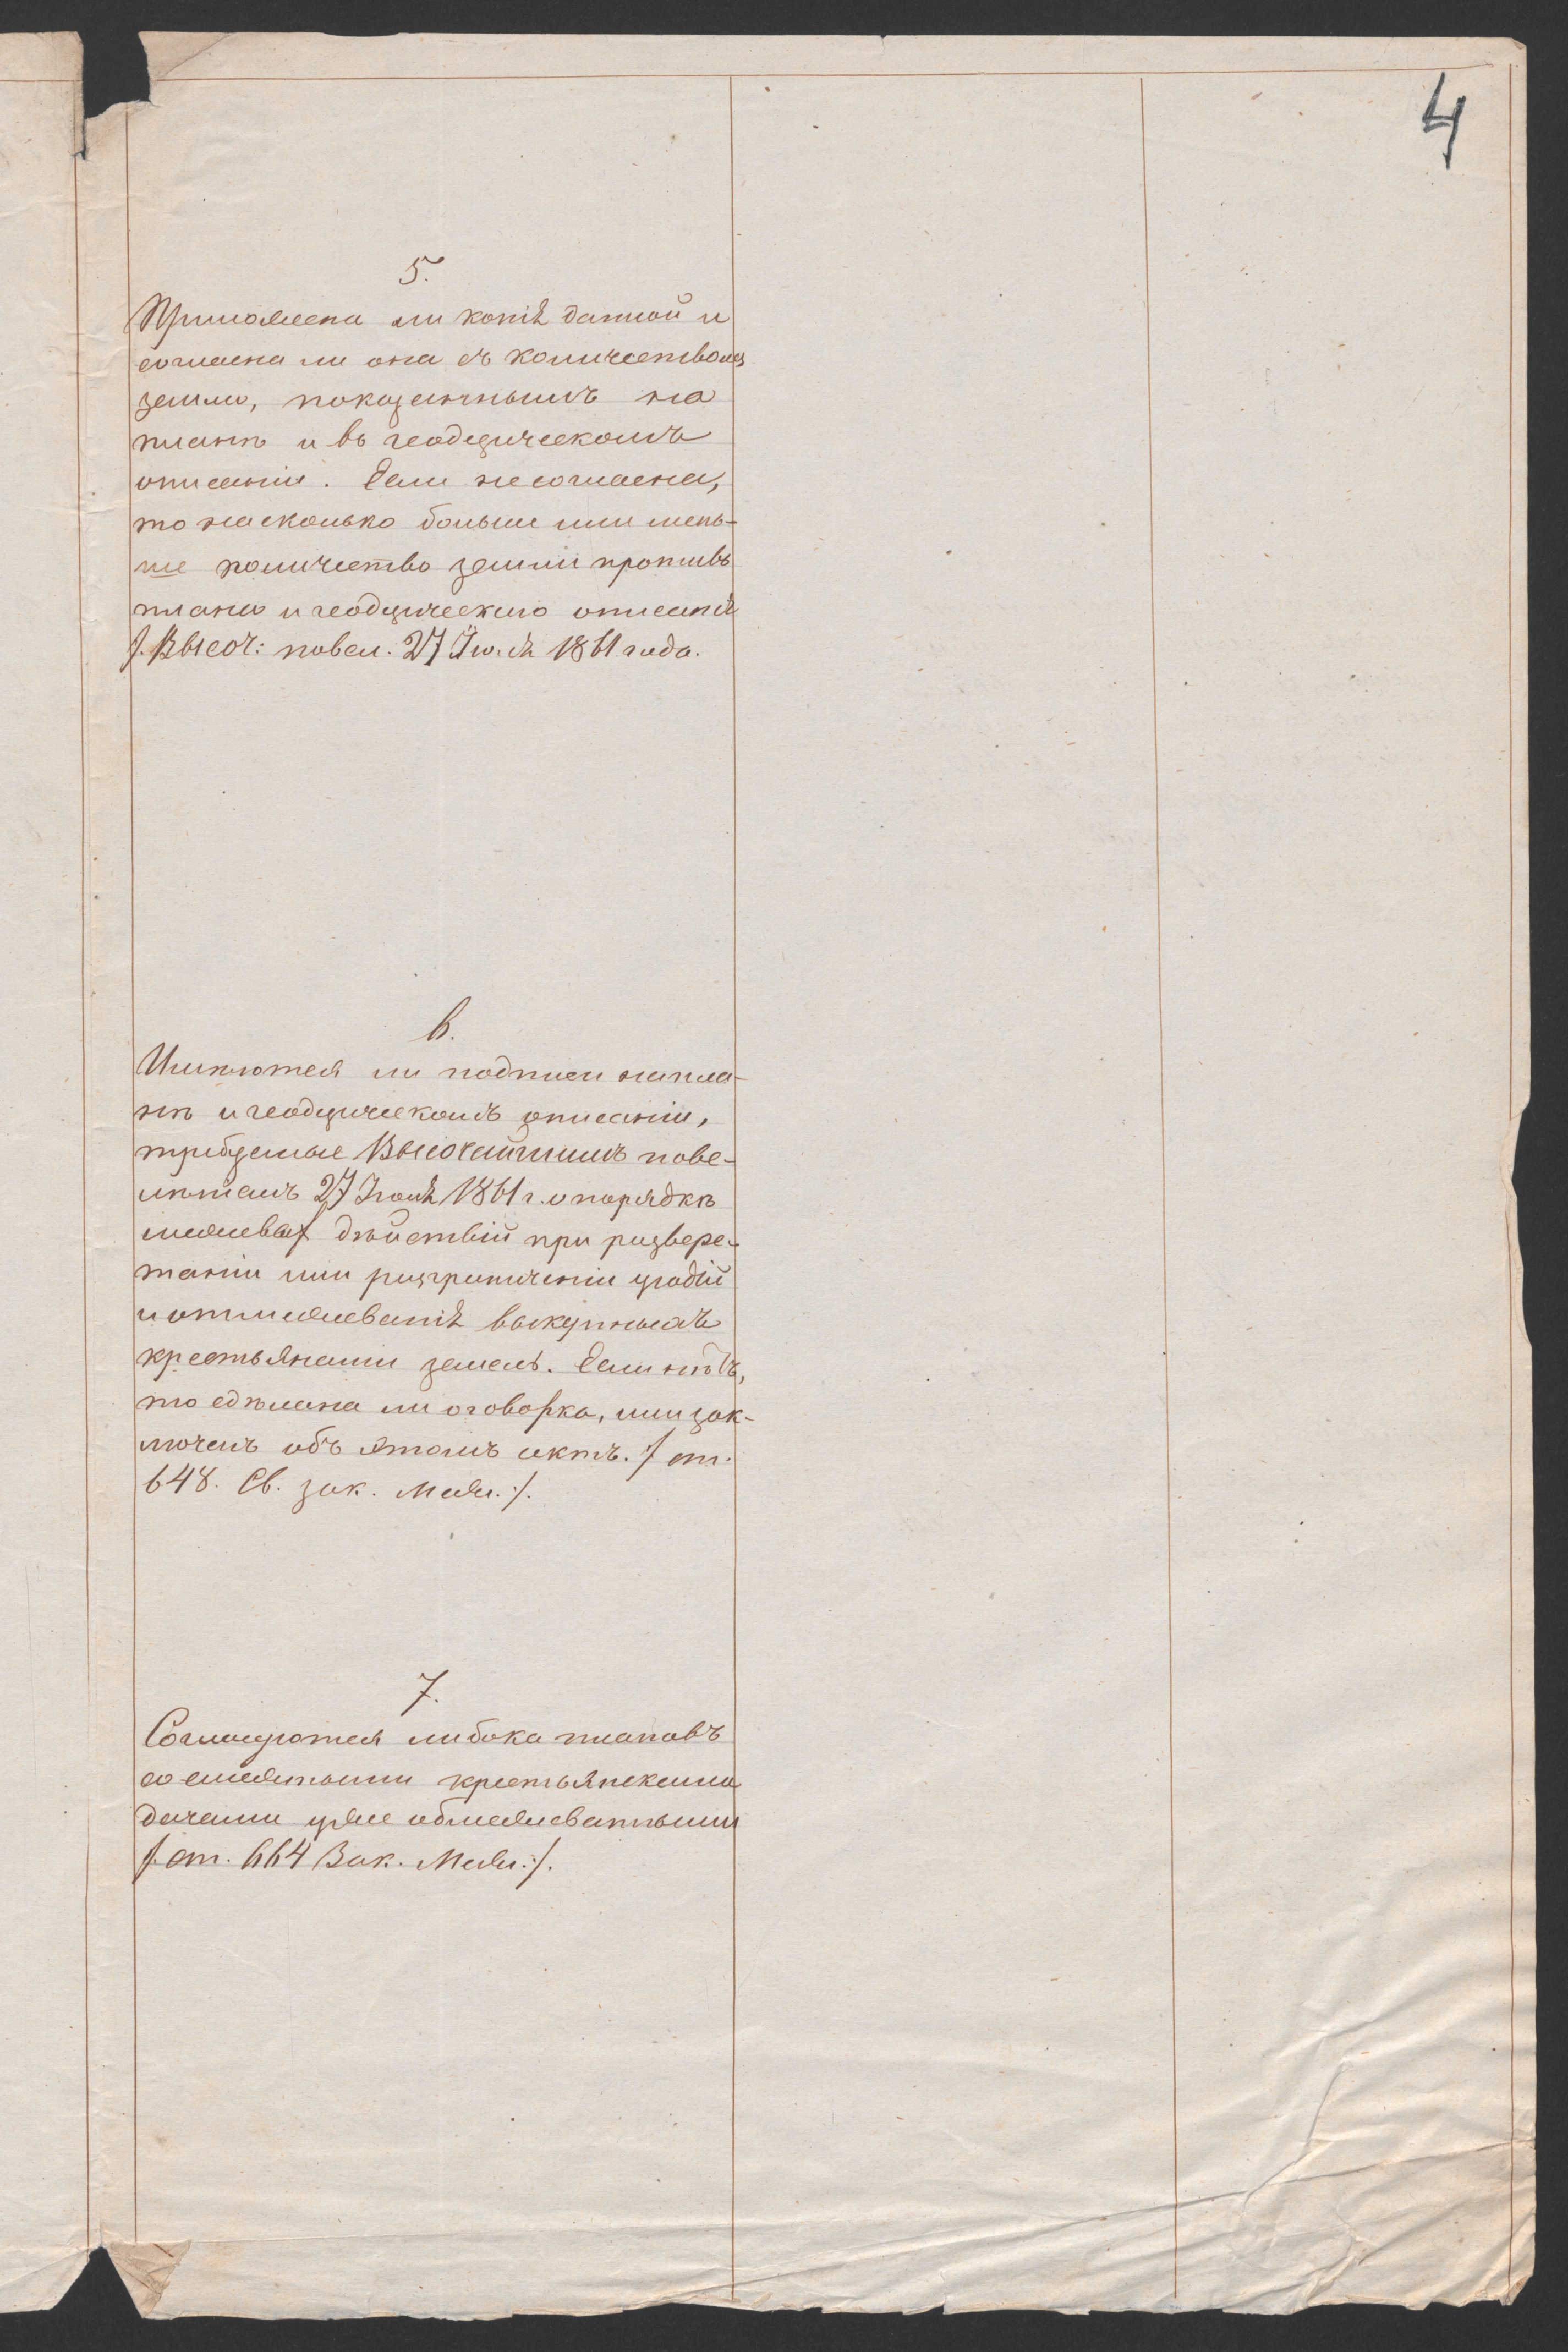 4
5.
Приложена ли копія данной и
согласна ли она съ количествомъ
земли, показаннымъ на
планѣ и въ геодезическомъ
описаніи. Если не согласна,
то на сколько больше или мень-
ше количество земли противъ
плана и геодезическаго описанія
/. Высоч: повел. 27 Іюля 1861 года.
6.
Имѣются ли подписи на пла-
нѣ и геодезическомъ описаніи,
требуемые Высочайшимъ пове-
лѣніемъ 27 Іюля 1861 г. о порядкѣ
межевых дѣйствій при разверс-
таніи или разграниченіи угодій
и отмежеванія выкупныхъ
крестьянами земель. Если нѣтъ,
то сдѣлана ли оговорка, или зак-
люченъ объ этомъ актъ. /. ст.
648. Св. зак. Меж. :/.
7.
Согласуются ли бока плановъ
со смежными крестьянскими
дачами уже обмежеванными
/. ст. 664 Зак. Меж. :/.